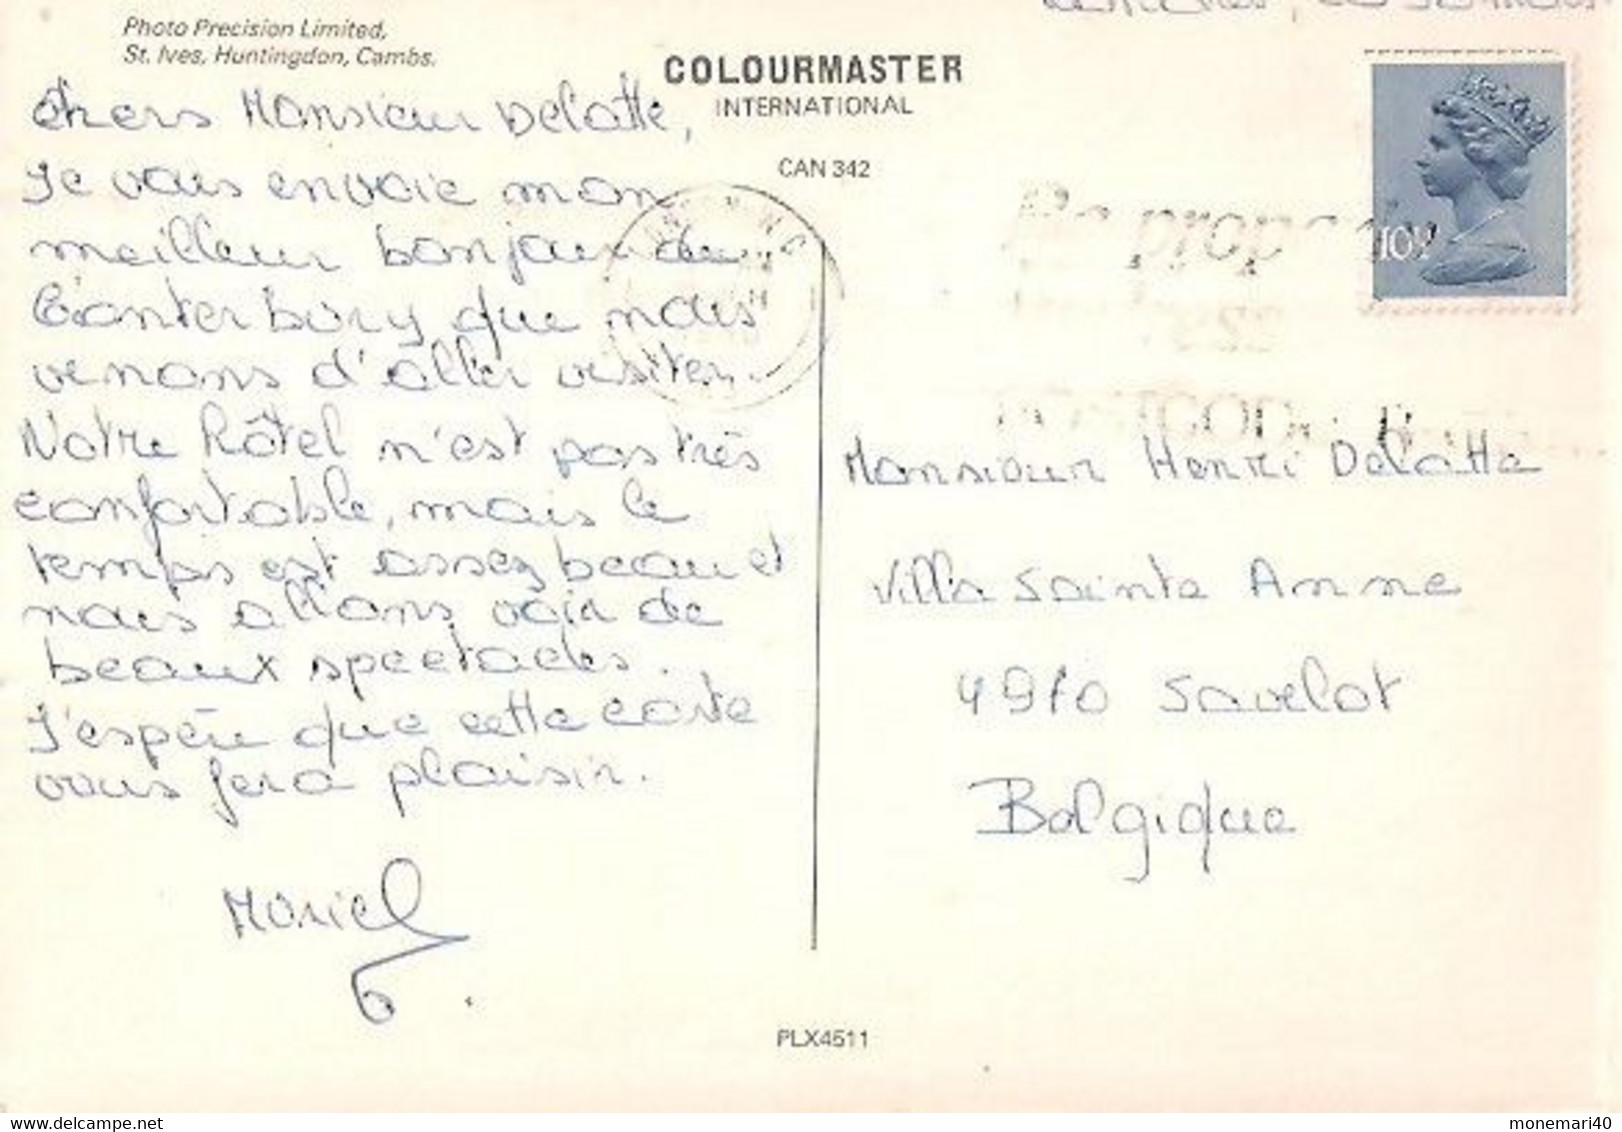 Photo Precision Limited,
St. Ives, Huntingdon, Cambs.
COLOURMASTER
INTERNATIONAL
CAN 342
10½
Chers Monsieur Delatte,
Je vous envoie mon
meilleur bonjour de
Canterbury que nous
venons d'aller visiter.
Notre hôtel n'est pas très
confortable, mais le
temps est assez beau et
nous allons voir de
beaux spectacles.
J'espère que cette carte
vous fera plaisir.
Muriel
Monsieur Henri Delatte
Villa Sainte Anne
4910 Savelot
Belgique
PLX4511
www.delcampe.net
monemari40